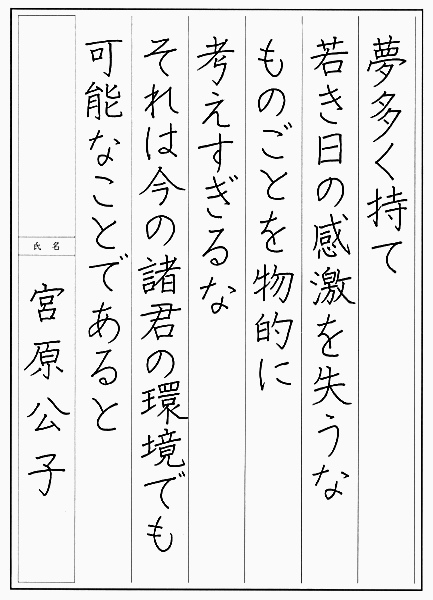 夢多く持て
若き日の感激を失うな
ものごとを物的に
考えすぎるな
それは今の諸君の環境でも
可能なことであると
氏名
宮原公子